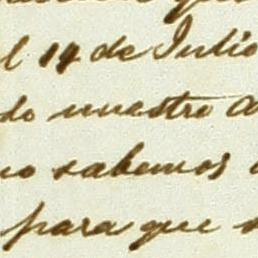 l 14 de Julio
do nuestro a
no sabemos
para que